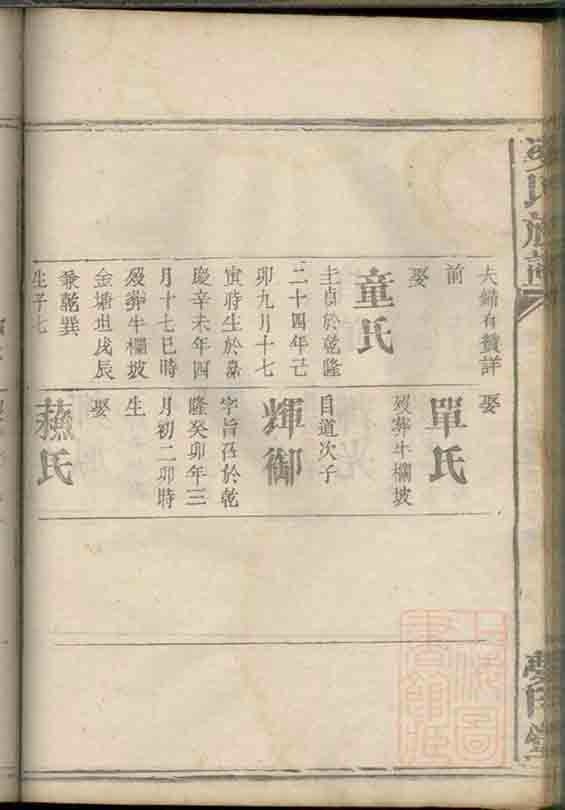 夫婦有贊詳
前
娶
童氏
圭貞於乾隆
二十四年己
卯九月十七
寅時生於嘉
慶辛未年四
月十七巳時
歿葬牛欄坡
金塘丗戌辰
兼乾巽
生子七
娶
單氏
歿葬牛欄坡
目道次子
輝御
字旨召於乾
隆癸卯年三
月初二卯時
生
娶
蘓氏
氏族譜
堂
上海圖
書館藏